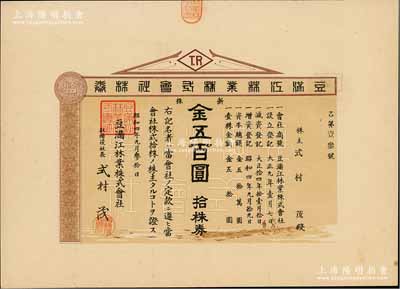 上海陽明拍賣
豆滿江林業株式會社株券
新株
乙第壹參號
株主 式村茂殿
一會社商號 豆滿江林業株式會社
一設立登記 大正九年壹月七日
一減資登記 大正拾四年拾壹月拾日
一增資登記 昭和四年九月九日
一資本總額 金五拾萬圓
一壹株金額 金五拾圓
金五百圓 拾株券
右記名者ハ當會社ノ定款ニ遵ヒ當
會社株式拾株ノ株主タルコトヲ證ス
昭和四年九月參拾日
豆滿江林業株式會社
取締役社長 式村茂